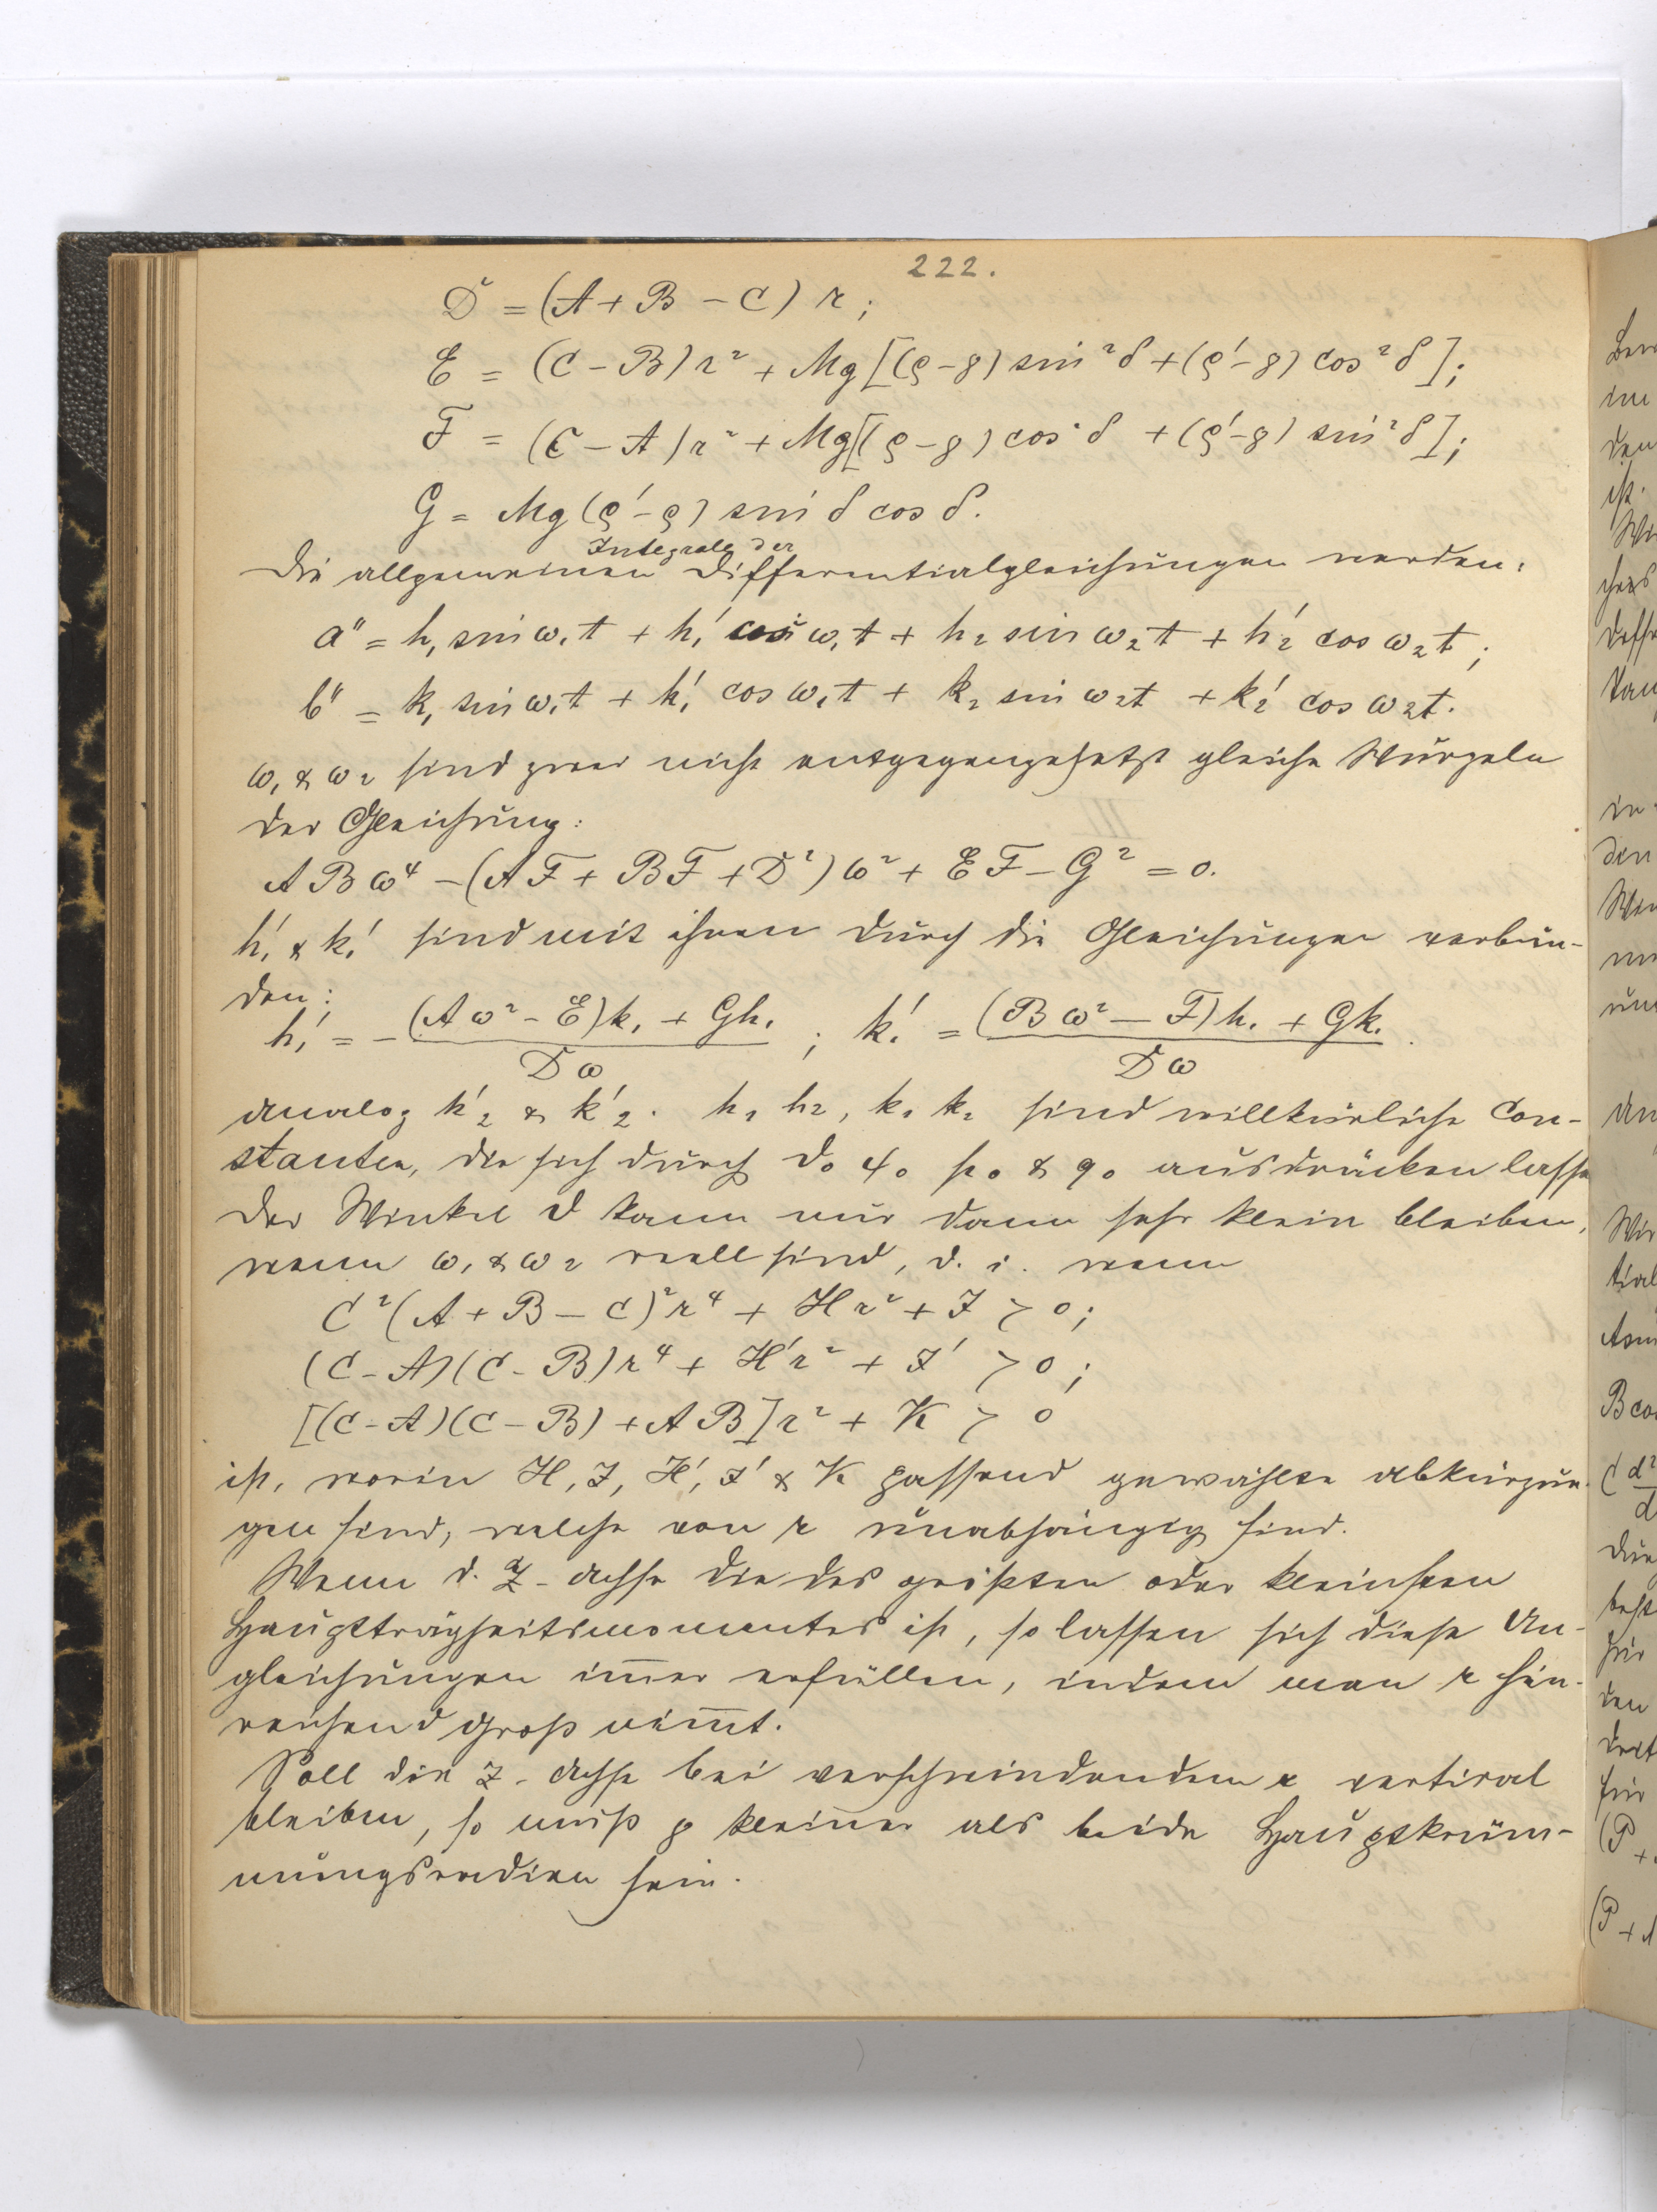 222.
D = (A + B - C) r;
E = (C - B) r² + Mg [(ρ - g) sin² δ + (ρ' - g) cos² δ];
F = (C - A) r² + Mg [(ρ - g) cos² δ + (ρ' - g) sin² δ];
G = Mg (ρ' - ρ) sin δ cos δ.
Integrale der
Die allgemeinen Differentialgleichungen werden:
a'' = h₁ sin ω₁t + h₁' cos ω₁t + h₂ sin ω₂t + h₂' cos ω₂t;
b'' = k₁ sin ω₁t + k₁' cos ω₁t + k₂ sin ω₂t + k₂' cos ω₂t.
ω₁ & ω₂ sind zwei nicht entgegengesetzt gleiche Wurzeln
der Gleichung:
ABω⁴ - (AF + BF + D²) ω² + EF - G² = 0.
h₁' & k₁' sind mit ihnen durch die Gleichungen verbun-
den:
h₁' = - (Aω² - E)k₁ + Gh₁ / Dω ; k₁' = (Bω² - F)h₁ + Gk₁ / Dω .
analog h₂' & k₂'. h₁ h₂, k₁ k₂ sind willkürliche Con-
stanten, die sich durch ϑ₀ φ₀ p₀ & q₀ ausdrücken lasse
Der Winkel ϑ kann nur dann sehr klein bleiben,
wenn ω₁ & ω₂ reell sind, d. i. wenn
C² (A + B - C)² r⁴ + Hr² + J > 0;
(C - A)(C - B) r⁴ + H'r² + J' > 0;
[(C - A)(C - B) + AB] r² + K > 0
ist, worin H, J, H', J' & K passend gewählte abkürzun-
gen sind, welche von r unabhängig sind.
Wenn d. Z-achse die des größten oder kleinsten
Hauptträgheitsmomentes ist, so lassen sich diese Un-
gleichungen im̅er erfüllen, indem man r hin-
reichend groß nim̅t.
Soll die Z-achse bei verschwindendem r vertical
bleiben, so muß g kleiner als beide Hauptkrüm-
mungsradien sein.